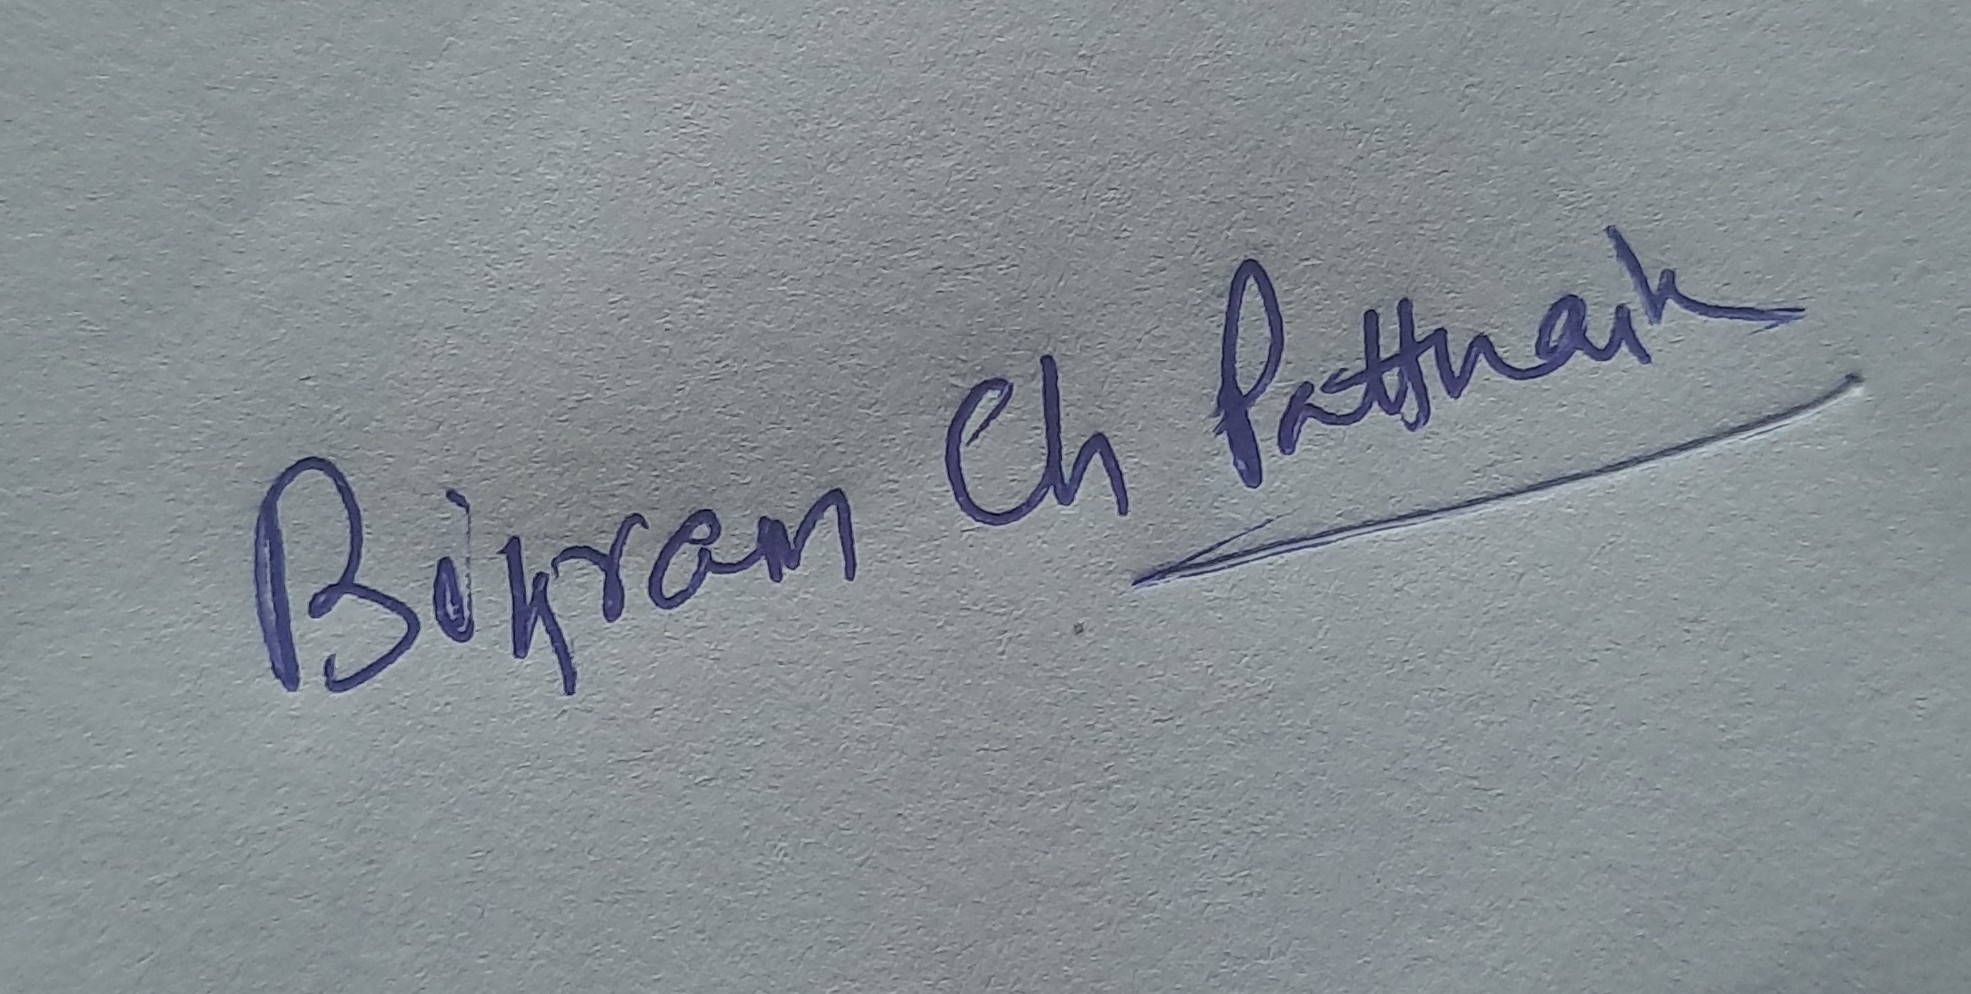 Bikram Ch Pattnaik